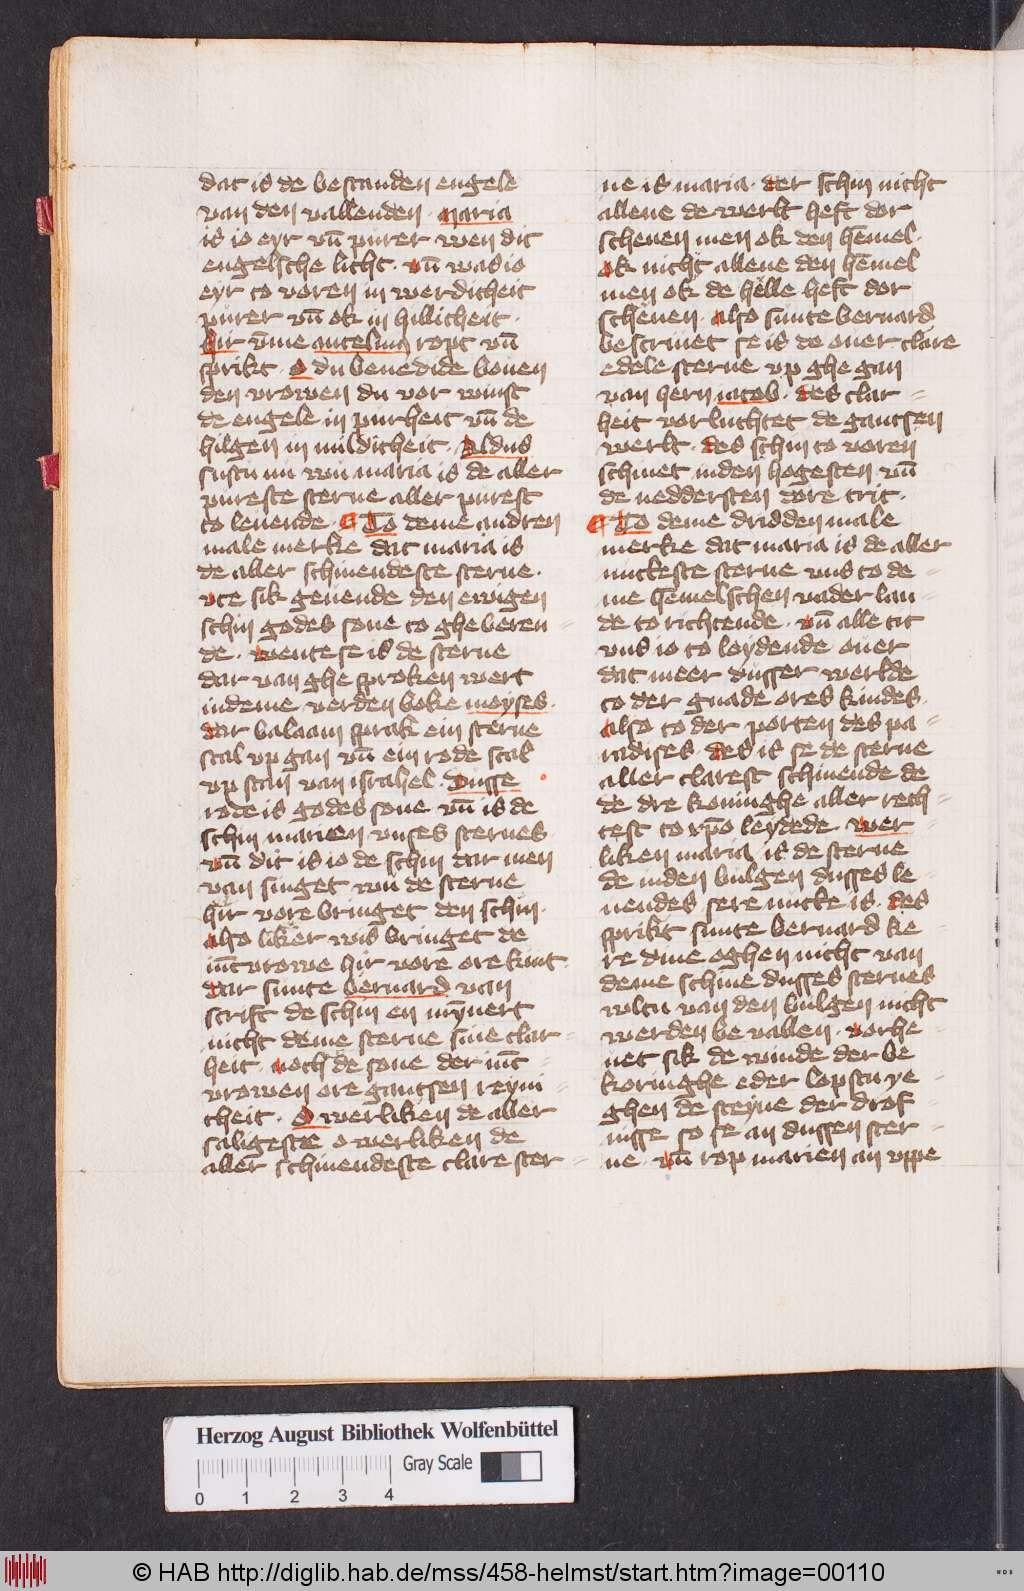 dat is de bestanden engele
van den vallenden · maria
is io eyr vn̄ purer wen dit
engelsche licht · vn̄ was io
eyr to voren in werdicheit
purer vn̄ ok in hillicheit ·
hir v̄me ancelmus ropt vn̄
sprikt · O du benedide bouen
den vrowen du vor winst
de engele in purheit vn̄ de
hilgen in mildicheit · Aldus
sustu nu wu maria is de aller
pureste sterne aller purest
to leuende · ¶ To deme andren
male merke dat maria is
de aller schinendeste sterne ·
vte sik geuende den ewigen
schin godes sone to ghe beren =
de · wente se is de sterne
dar van ghe sproken wert
in deme verden boke moyses ·
dar balaam sprak ein sterne
scal vp gan vn̄ ein rode scal
vp stan van israhel · Dusse
rode is godes sone vn̄ is de
schin marien vnses sternes
vn̄ dit is io de schin dar men
van singet wu de sterne
hir vore bringet den schin ·
also liker wis bringet de
iūc vrowe hir vore ore kint ·
dar sunte bernard van
scrift de schin en mȳnert
nicht deme sterne sine clar =
heit · noch de sone der iūc =
vrowen ore gantsen reyni =
cheit · O werliken de aller
saligeste o werliken de
aller schinendeste clare ster =
ne is maria · der schin nicht
allene de werlt heft dor
schenen men ok den hemel ·
ok nicht allene den hemel
men ok de helle heft dor
schenen · also sunte bernard
bescriuet se is de ouer clare
edele sterne vp ghe gan
van hern iacob · des clar =
heit vorluchtet de gantsen
werlt · des schin to voren
schinet in den hogesten vn̄
de neddersten dore trit ·
¶ To deme dridden male
merke dat maria is de aller
nutteste sterne vns to de =
me hemelschen vader lan =
de to richtende · vn̄ alle tit
vns io to leydende ouer
dat meer dusser werlde
to der gnade ores kindes ·
also to der porten des pa =
radises · des is se de sterne
aller clarest schinende de
de dre koninghe aller rech =
test to xp̄o leydede · wer =
liken maria is de sterne
de in den bulgen dusses le =
uendes sere nutte is · des
sprikt sunte bernard ke =
re dine oghen nicht van
deme schine dusses sternes
wltu van den bulgen nicht
werden be vallen · vorhe =
uet sik de winde der be =
koringhe eder lopstu ye =
ghen de steyne der drof =
nisse so se an dussen ster =
ne · vn̄ rop marien an vppe
Herzog August Bibliothek Wolfenbüttel
Gray Scale
0 1 2 3 4
© HAB http://diglib.hab.de/mss/458-helmst/start.htm?image=00110